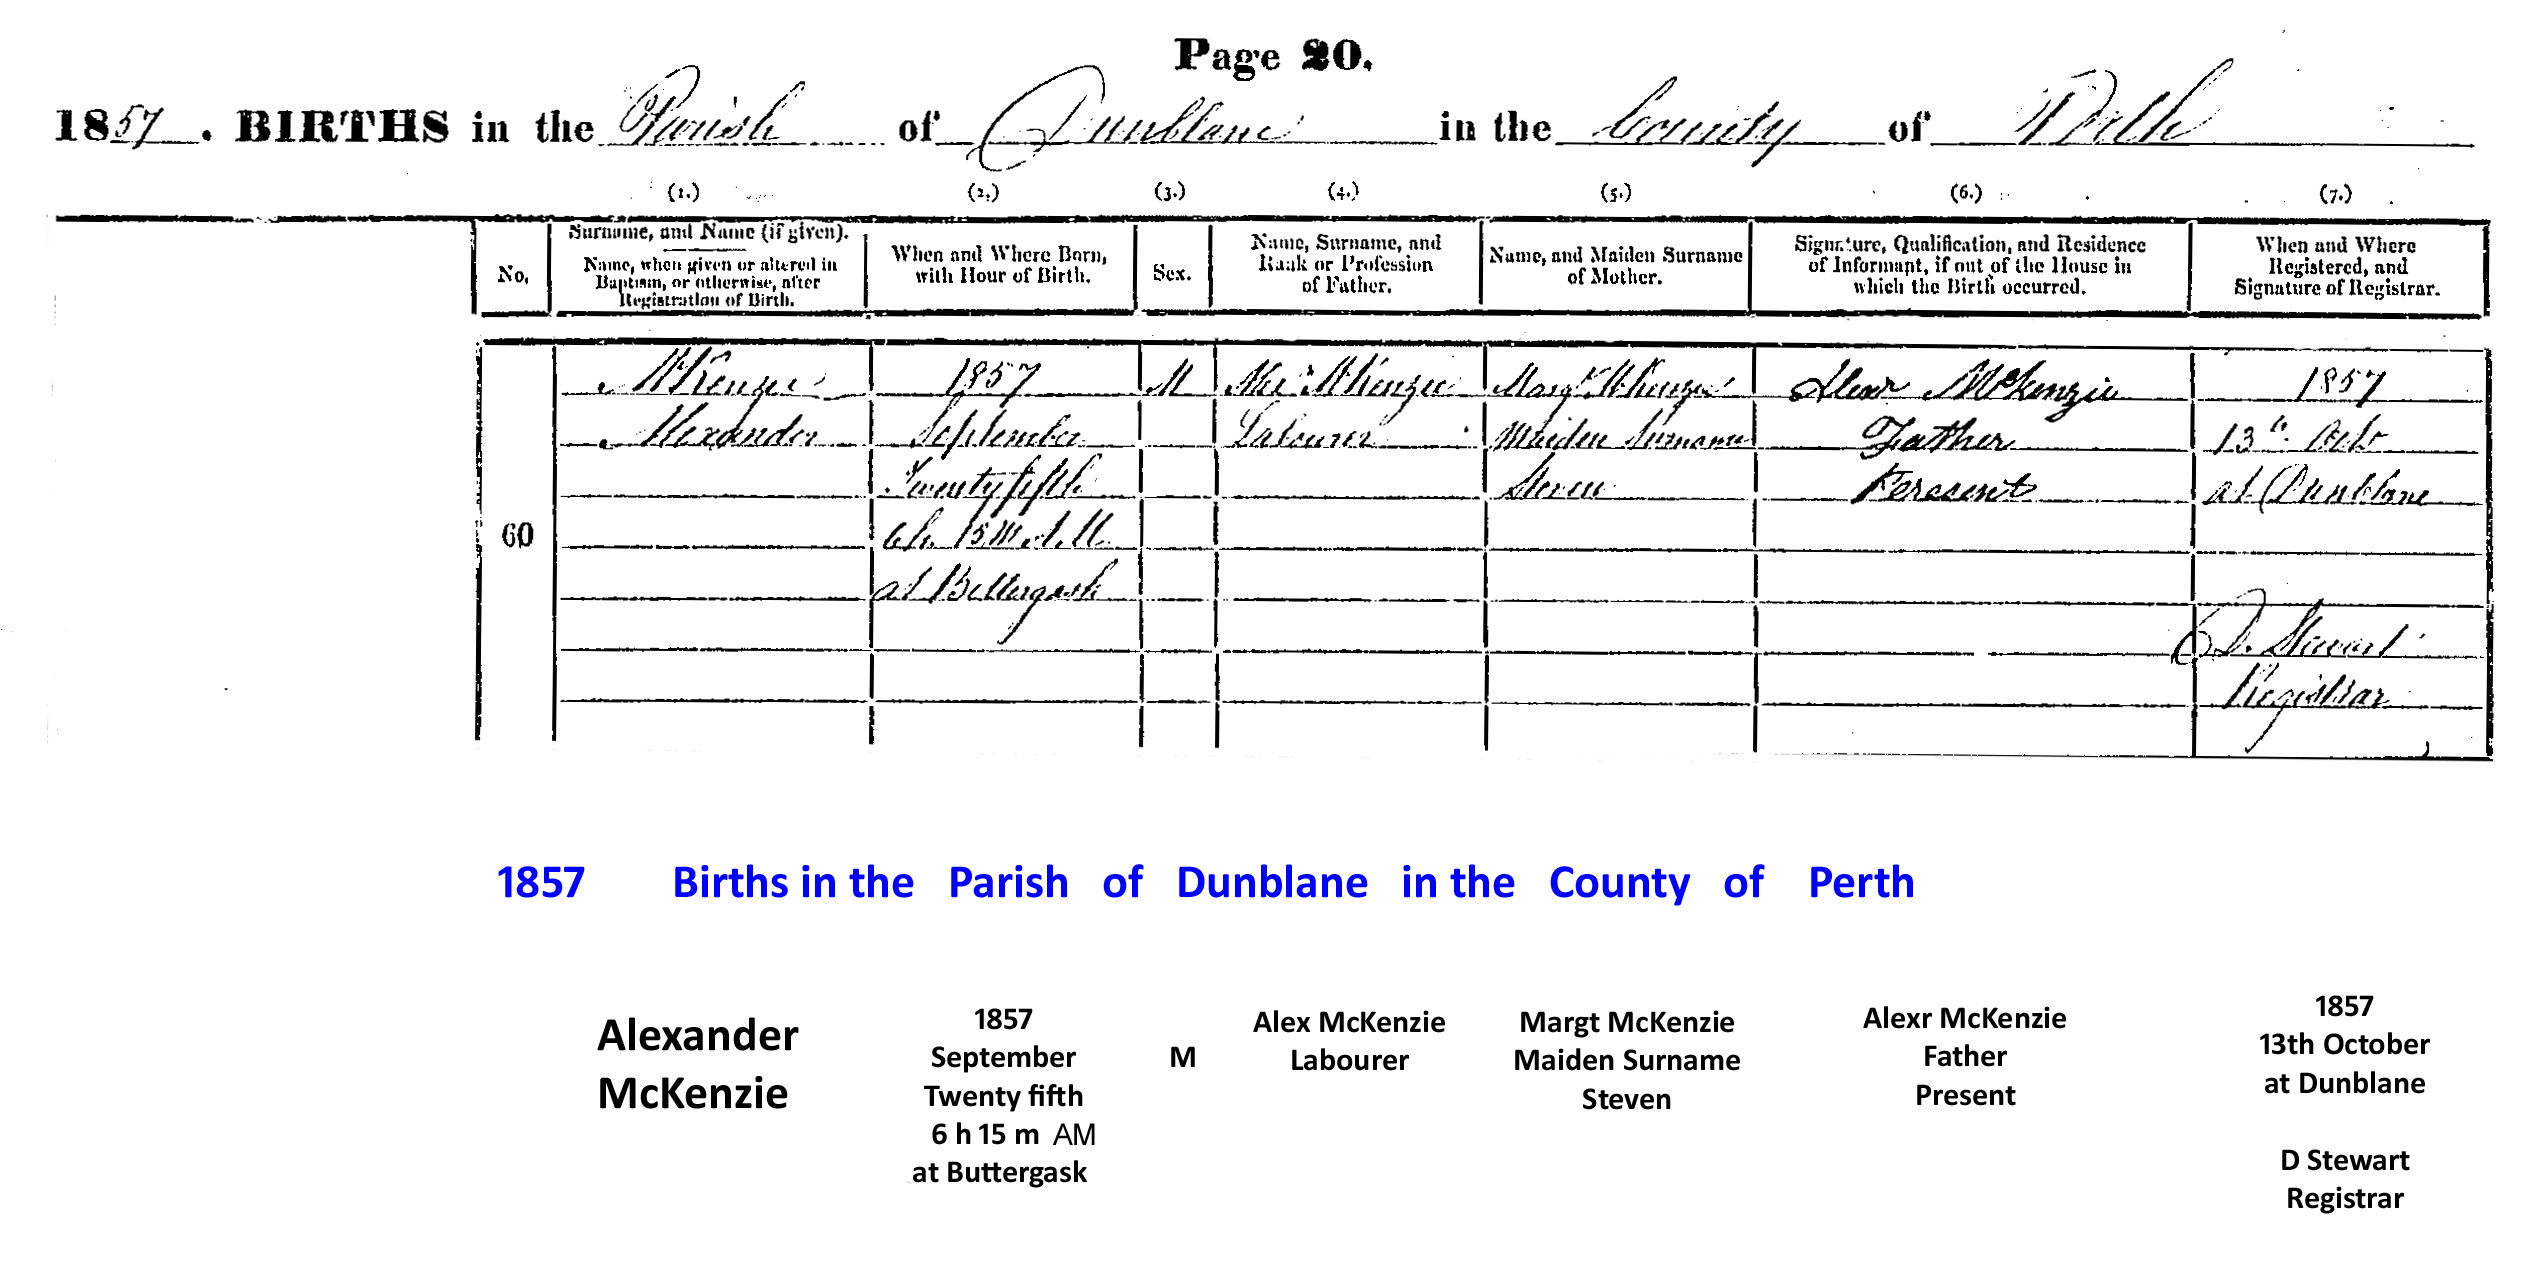 Page 20.
1857. BIRTHS in the Parish of Dunblane in the County of Perth
(1.) (2.) (3.) (4.) (5.) (6.) (7.)
No.
Surname, and Name (if given).
Name, when given or altered in
Baptism, or otherwise, after
Registration of Birth.
When and Where Born,
with Hour of Birth.
Sex.
Name, Surname, and
Rank or Profession
of Father.
Name, and Maiden Surname
of Mother.
Signature, Qualification, and Residence
of Informant, if out of the House in
which the Birth occurred.
When and Where
Registered, and
Signature of Registrar.
60
McKenzie
Alexander
1857
September
Twenty fifth
6 h. 15 m. A.M.
at Buttergask
M
Alexr McKenzie
Labourer
Margt McKenzie
Maiden Surname
Steven
Alexr McKenzie
Father
Present
1857
13th Octr
at Dunblane
D. Stewart
Registrar
1857 Births in the Parish of Dunblane in the County of Perth
Alexander
McKenzie
1857
September
Twenty fifth
6 h 15 m AM
at Buttergask
M
Alex McKenzie
Labourer
Margt McKenzie
Maiden Surname
Steven
Alexr McKenzie
Father
Present
1857
13th October
at Dunblane
D Stewart
Registrar